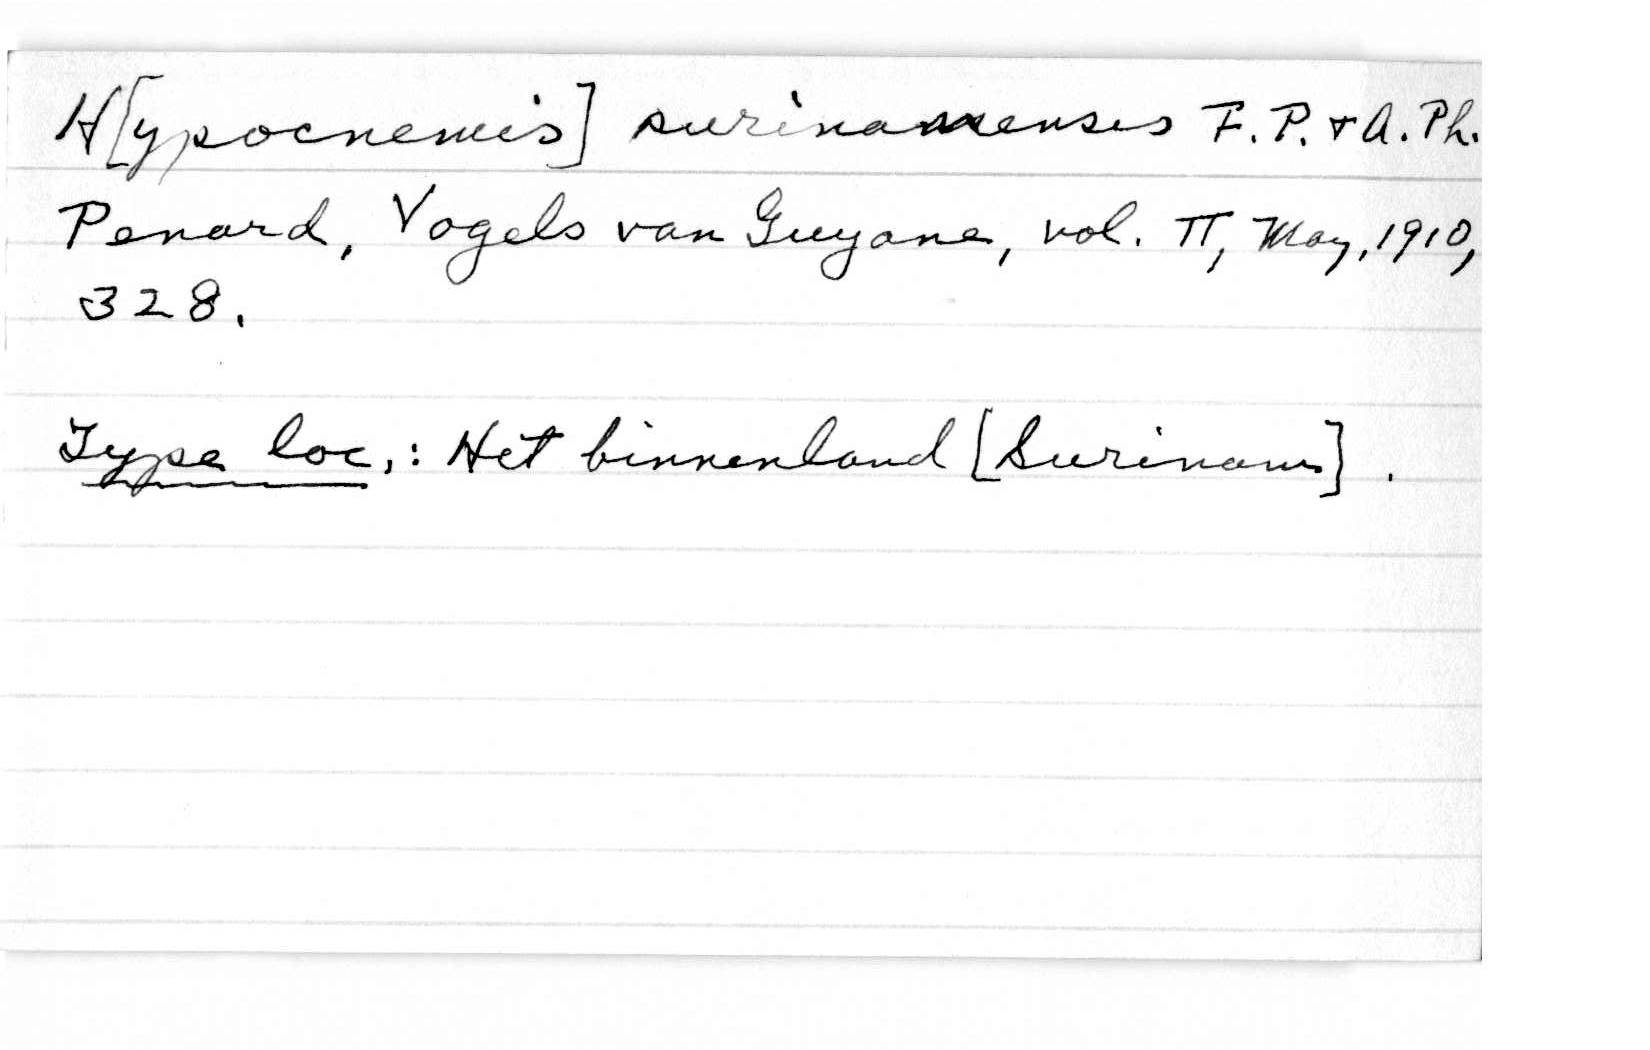 H[ypocnemis] surinamensis F. P. & A. Ph.
Penard, Vogels van Guyana, vol. II, May, 1910,
328.
Type loc.: Het binnenland [Surinam].